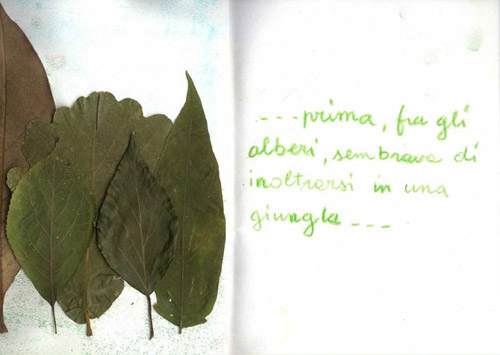 ....prima, fra gli
alberi, sembrava di
inoltrarsi in una
giungla ---